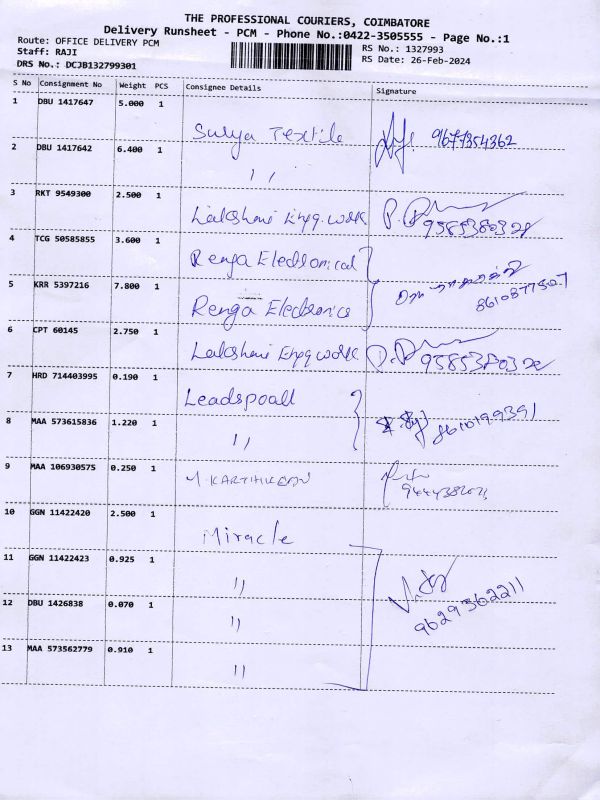 THE PROFESSIONAL COURIERS, COIMBATORE
Delivery Runsheet - PCM - Phone No.:0422-3505555 - Page No.:1
Route: OFFICE DELIVERY PCM RS No.: 1327993
Staff: RAJI RS Date: 26-Feb-2024
DRS No.: DCJB132799301
S No Consignment No Weight PCS Consignee Details Signature
1 DBU 1417647 5.000 1 Surya Textile 9677354362
2 DBU 1417642 6.400 1 ,,
3 RKT 9549300 2.500 1 Lakshmi Engg.work
4 TCG 50585855 3.600 1 Renga Electronical
5 KRR 5397216 7.800 1 Renga Electronics
6 CPT 60145 2.750 1 Lakshmi Engg work
7 HRD 714403995 0.190 1 Leadspoall
8 MAA 573615836 1.220 1 ,, 8610199391
9 MAA 106930575 0.250 1 M. KARTHIKEAN
10 GGN 11422420 2.500 1 Miracle
11 GGN 11422423 0.925 1 ,,
12 DBU 1426838 0.070 1 ,, 9629362211
13 MAA 573562779 0.910 1 ,,